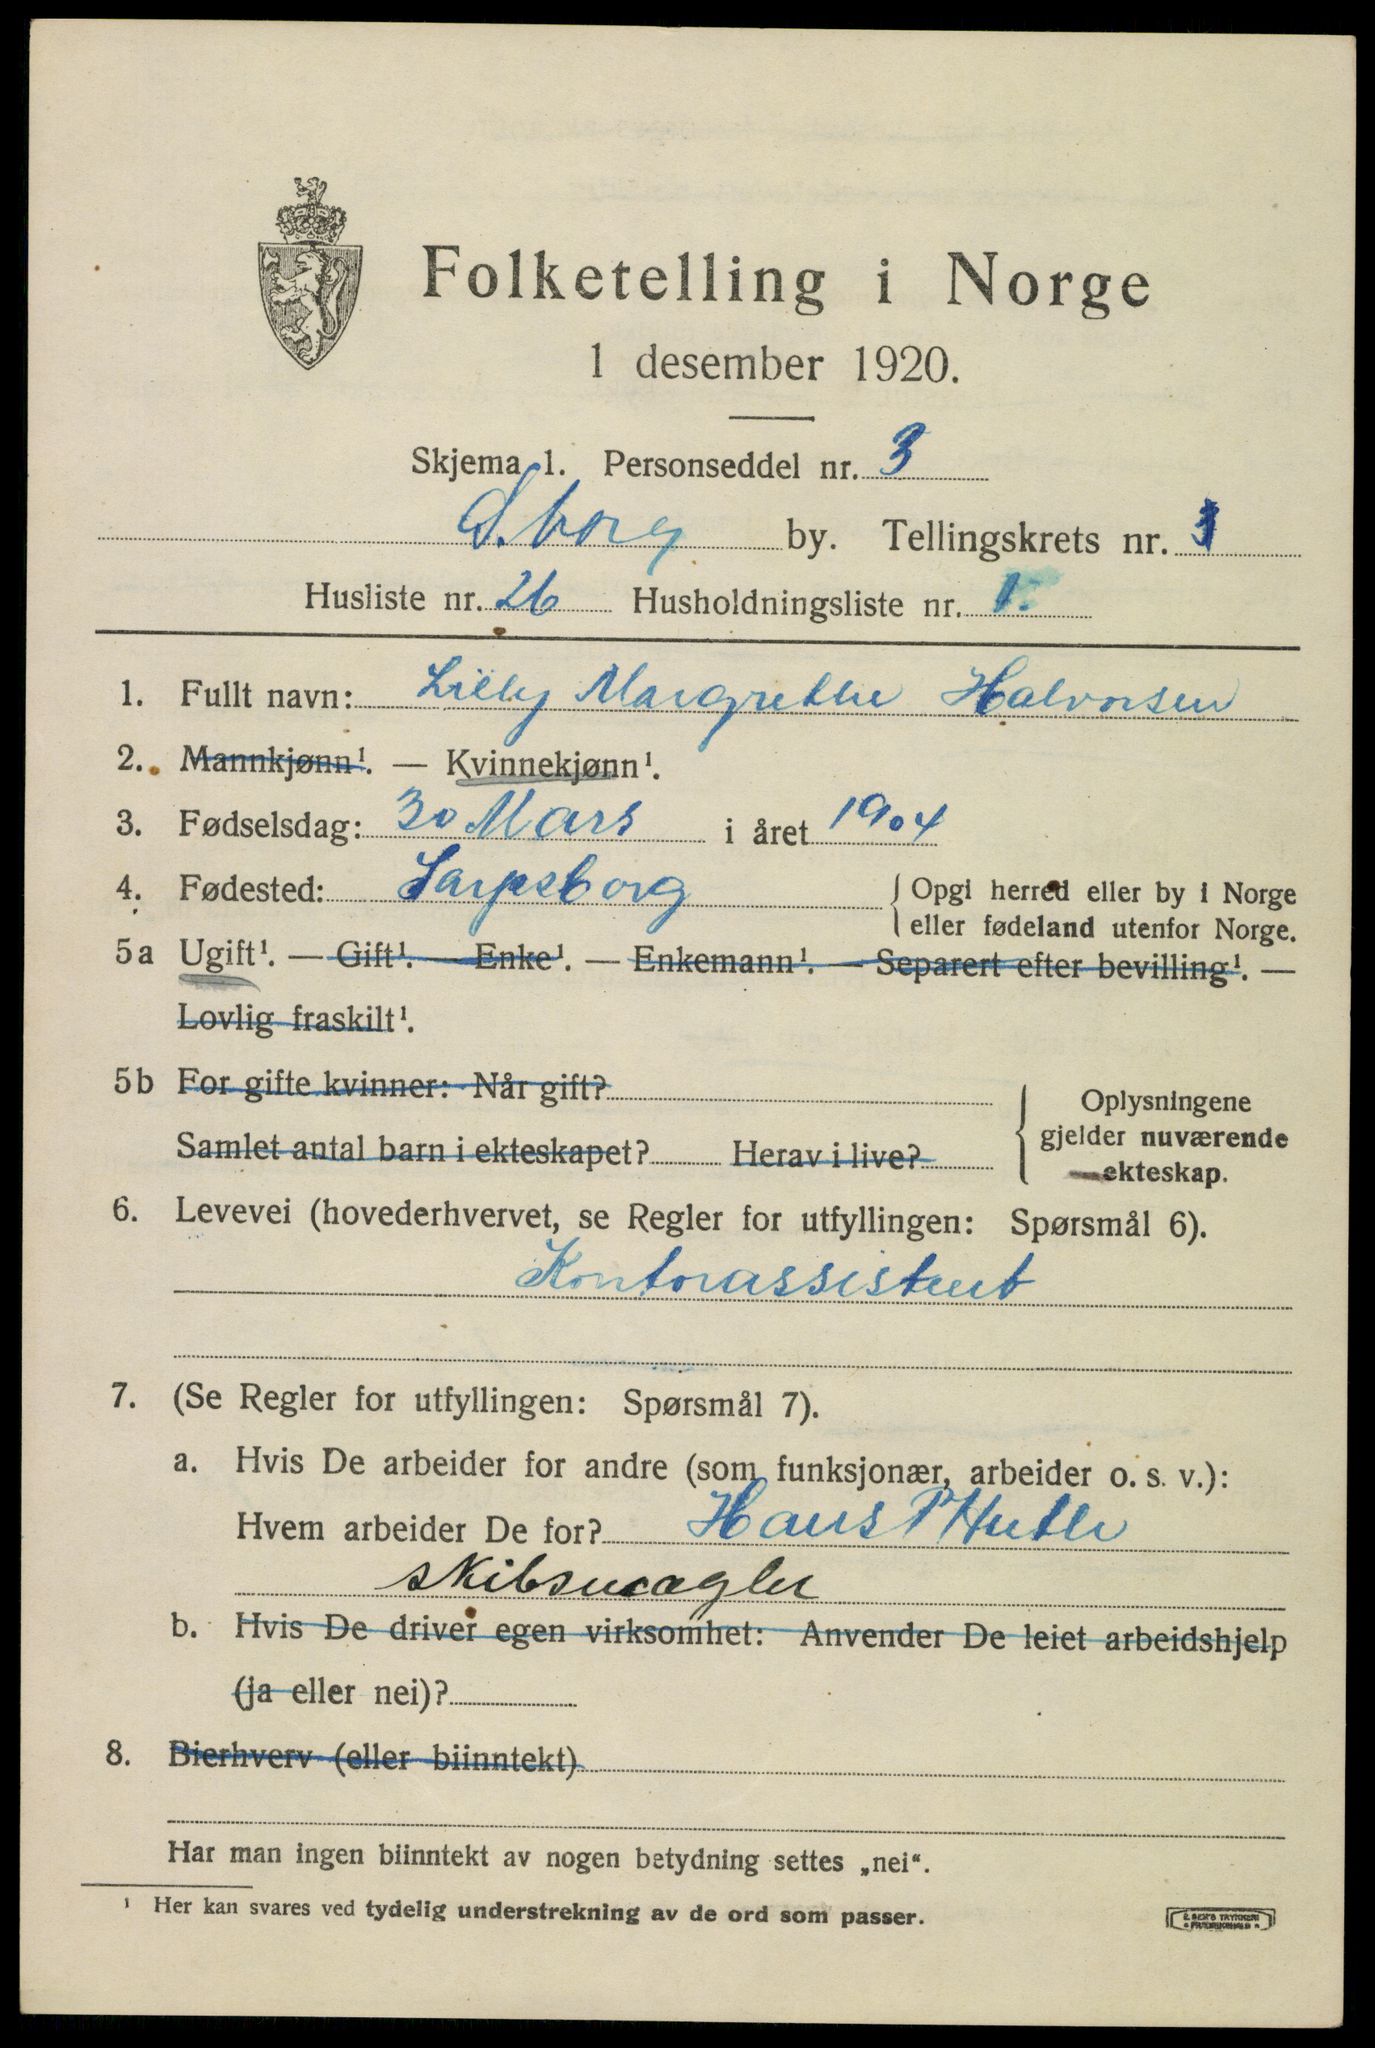 Folketelling i Norge
1 desember 1920.
Skjema 1. Personseddel nr. 3
S.borg by. Tellingskrets nr.
Husliste nr. 26 Husholdningsliste nr. 1.
1. Fullt navn: Lilly Margrethe Halvorsen
2. Mannkjønn¹. — Kvinnekjønn¹.
3. Fødselsdag: 30 Mars i året 1904
4. Fødested: Sarpsborg { Opgi herred eller by i Norge
eller fødeland utenfor Norge.
5a Ugift¹. — Gift¹. — Enke¹. — Enkemann¹. — Separert efter bevilling¹. —
Lovlig fraskilt¹.
5b For gifte kvinner: Når gift?
Samlet antal barn i ekteskapet? Herav i live?
Oplysningene
gjelder nuværende
ekteskap.
6. Levevei (hovederhvervet, se Regler for utfyllingen: Spørsmål 6).
Kontorassistent
7. (Se Regler for utfyllingen: Spørsmål 7).
a. Hvis De arbeider for andre (som funksjonær, arbeider o. s. v.):
Hvem arbeider De for? Hans P
skibsmægler
b. Hvis De driver egen virksomhet: Anvender De leiet arbeidshjelp
(ja eller nei)?
8. Bierhverv (eller biinntekt)
Har man ingen biinntekt av nogen betydning settes „nei“.
¹ Her kan svares ved tydelig understrekning av de ord som passer.